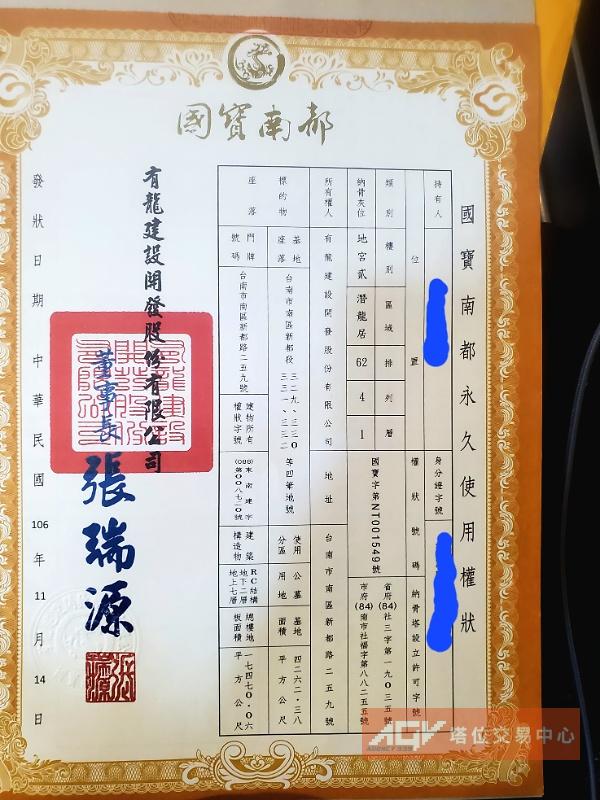 國寶南都
國寶南都永久使用權狀
持有人
身分證字號
位置
權狀號碼
納骨塔設立許可字號
類別
樓別
區域
排
列
層
納骨灰位
地宮貳
潛龍居
62
4
1
國寶字第NT001549號
省府(84)社三字第一九〇三五號
市府(84)南市社福字第八八二五五號
所有權人
有龍建設開發股份有限公司
地址
台南市南區新都路二五九號
標的物
基地座落
台南市南區新都段三二九、三三〇三三一、三三二等四筆地號
使用分區
公墓用地
基地面積
四二六二.三八平方公尺
座落
門牌號碼
台南市南區新都路二五九號
建物所有權狀字號
(088)東南建字第〇〇八七二〇號
建築構造物
RC結構地下二層地上七層
總樓地板面積
一七四七〇.〇六平方公尺
有龍建設開發股份有限公司
董事長
張瑞源
發狀日期
中華民國106年11月14日
AGV
AGENCY 339
塔位交易中心